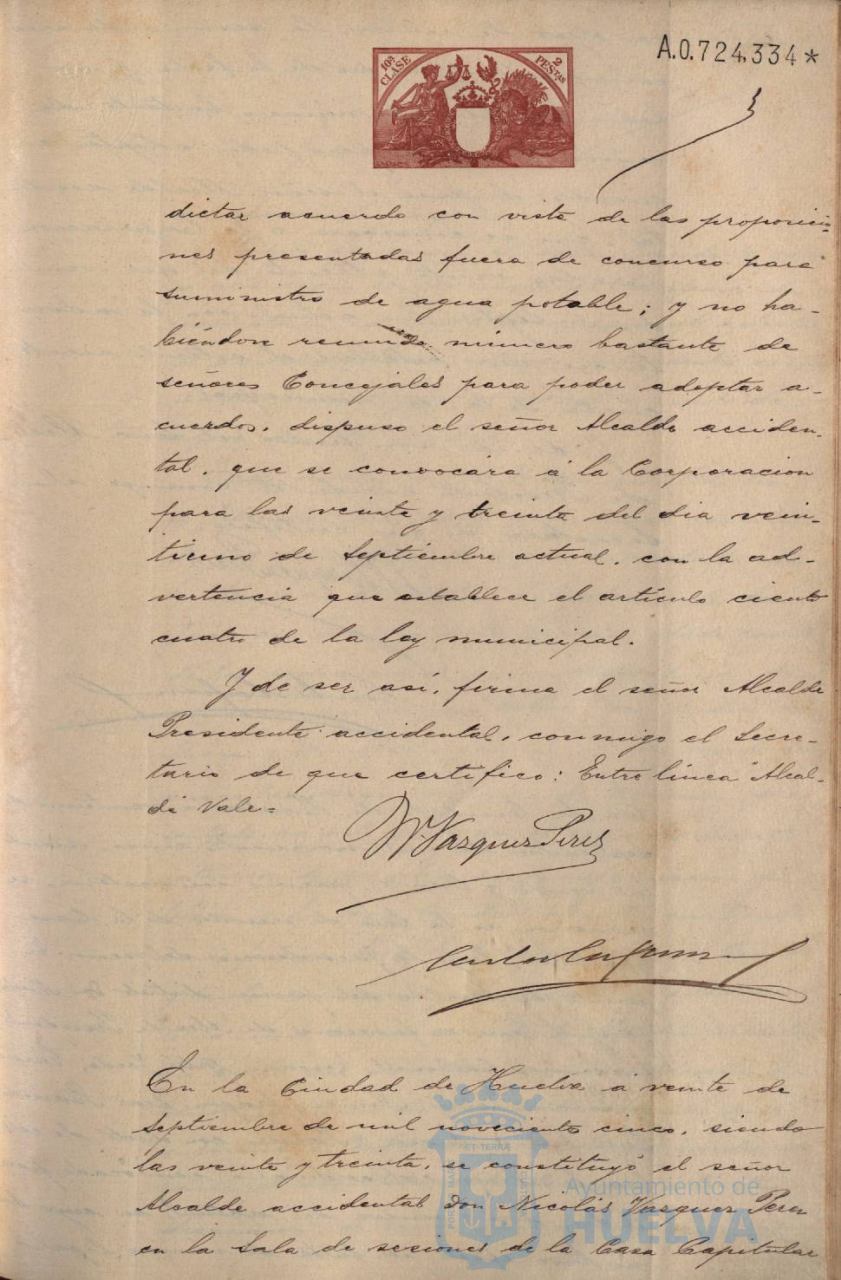 10ª CLASE
2 PESTAS
A.0.724.334*
dictar acuerdo con vista de las proposicio-
nes presentadas fuera de concurso para
suministro de agua potable; y no ha-
biéndose reunido número bastante de
señores Concejales para poder adoptar a-
cuerdos, dispuso el señor Alcalde acciden-
tal, que se convocára á la Corporacion
para las veinte y treinta del dia vein-
tiuno de Septiembre actual, con la ad-
vertencia que establece el artículo ciento
cuatro de la ley municipal.
Y de ser así, firma el señor Alcalde
Presidente accidental, conmigo el Secre-
tario de que certifico: Entre línea "Alcal-
di Vale=
N. Vazquez Perez
En la Ciudad de Huelva á veinte de
Septiembre de mil novecientos cinco, siendo
las veinte y treinta, se constituyó el señor
Alcalde accidental don Nicolás Vazquez Perez
en la Sala de sesiones de la Casa Capitular
Ayuntamiento de
HUELVA